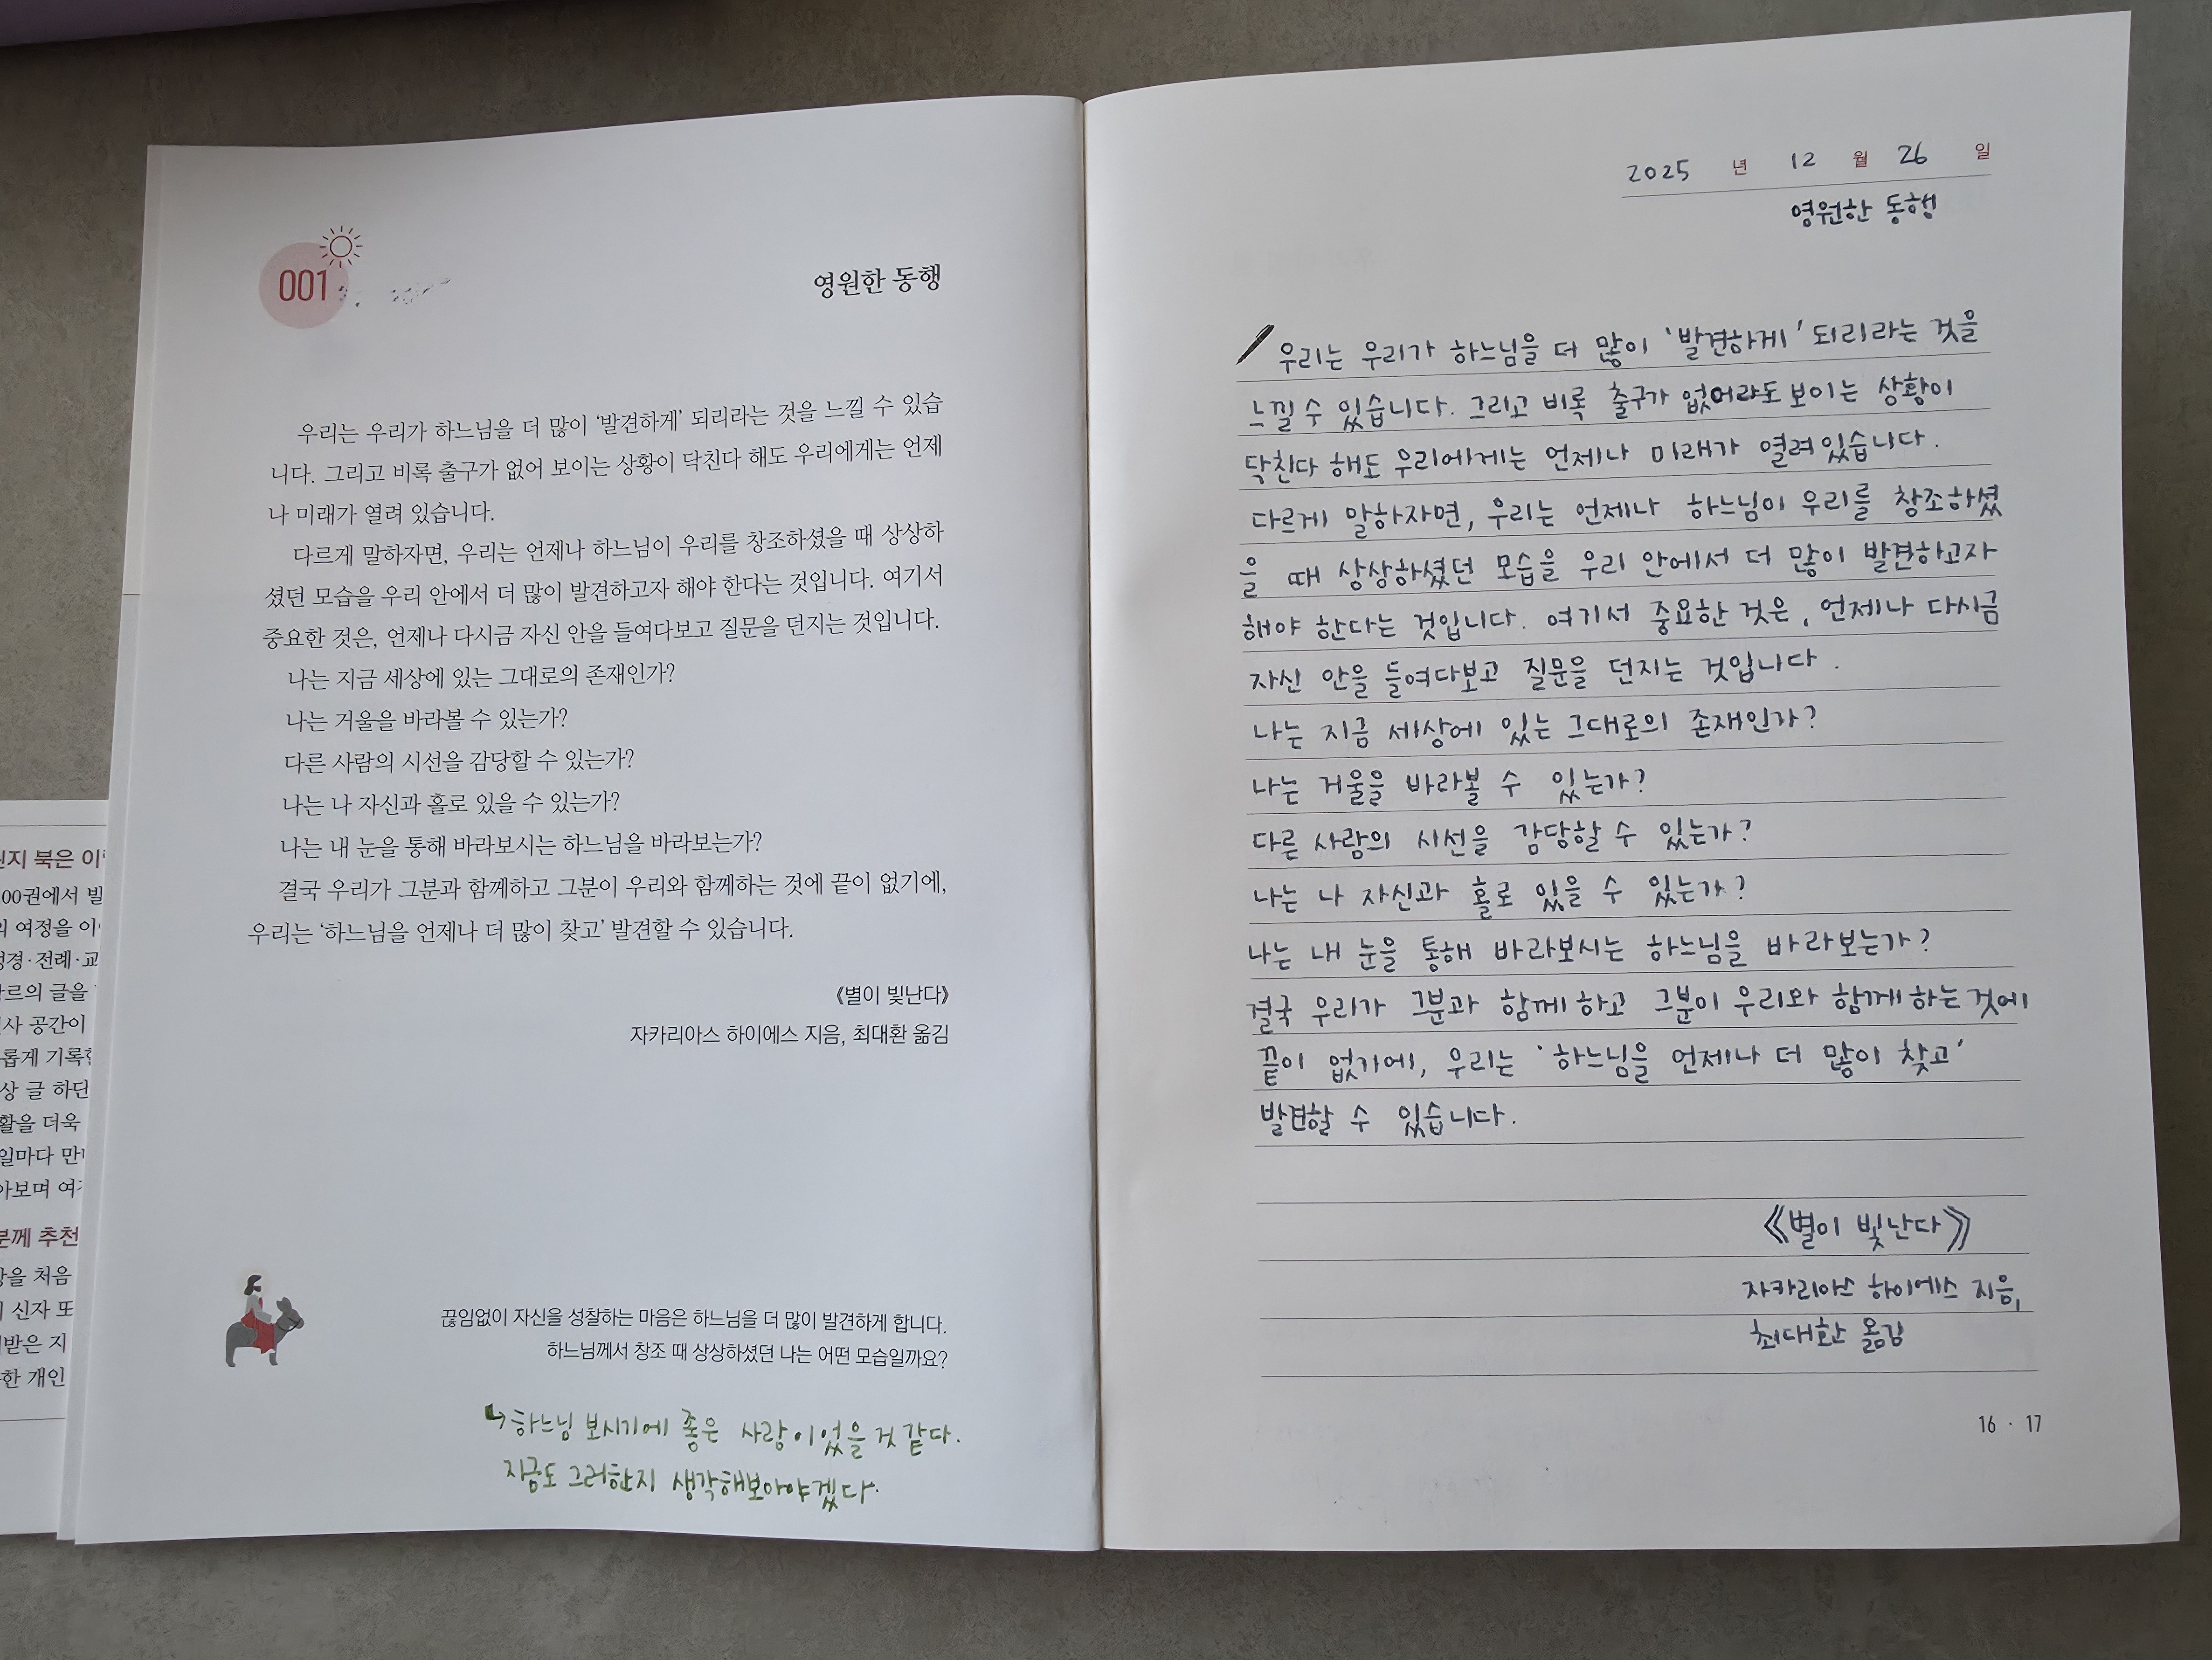 001
영원한 동행
우리는 우리가 하느님을 더 많이 ‘발견하게’ 되리라는 것을 느낄 수 있습
니다. 그리고 비록 출구가 없어 보이는 상황이 닥친다 해도 우리에게는 언제
나 미래가 열려 있습니다.
다르게 말하자면, 우리는 언제나 하느님이 우리를 창조하셨을 때 상상하
셨던 모습을 우리 안에서 더 많이 발견하고자 해야 한다는 것입니다. 여기서
중요한 것은, 언제나 다시금 자신 안을 들여다보고 질문을 던지는 것입니다.
나는 지금 세상에 있는 그대로의 존재인가?
나는 거울을 바라볼 수 있는가?
다른 사람의 시선을 감당할 수 있는가?
나는 나 자신과 홀로 있을 수 있는가?
나는 내 눈을 통해 바라보시는 하느님을 바라보는가?
결국 우리가 그분과 함께하고 그분이 우리와 함께하는 것에 끝이 없기에,
우리는 ‘하느님을 언제나 더 많이 찾고’ 발견할 수 있습니다.
《별이 빛난다》
자카리아스 하이에스 지음, 최대환 옮김
끊임없이 자신을 성찰하는 마음은 하느님을 더 많이 발견하게 합니다.
하느님께서 창조 때 상상하셨던 나는 어떤 모습일까요?
↳하느님 보시기에 좋은 사람이었을 것 같다.
지금도 그러한지 생각해보아야겠다.
2025 년 12 월 26 일
영원한 동행
우리는 우리가 하느님을 더 많이 ‘발견하게’ 되리라는 것을
느낄 수 있습니다. 그리고 비록 출구가 없어 보이는 상황이
닥친다 해도 우리에게는 언제나 미래가 열려있습니다.
다르게 말하자면, 우리는 언제나 하느님이 우리를 창조하셨
을 때 상상하셨던 모습을 우리 안에서 더 많이 발견하고자
해야 한다는 것입니다. 여기서 중요한 것은, 언제나 다시금
자신 안을 들여다보고 질문을 던지는 것입니다.
나는 지금 세상에 있는 그대로의 존재인가?
나는 거울을 바라볼 수 있는가?
다른 사람의 시선을 감당할 수 있는가?
나는 나 자신과 홀로 있을 수 있는가?
나는 내 눈을 통해 바라보시는 하느님을 바라보는가?
결국 우리가 그분과 함께하고 그분이 우리와 함께하는것에
끝이 없기에, 우리는 ‘하느님을 언제나 더 많이 찾고’
발견할 수 있습니다.
《별이 빛난다》
자카리아스 하이에스 지음,
최대환 옮김
16 · 17
북은
00권에서
여정을
글을
공간이
글
더욱
분께 추천
처음
신자
개인